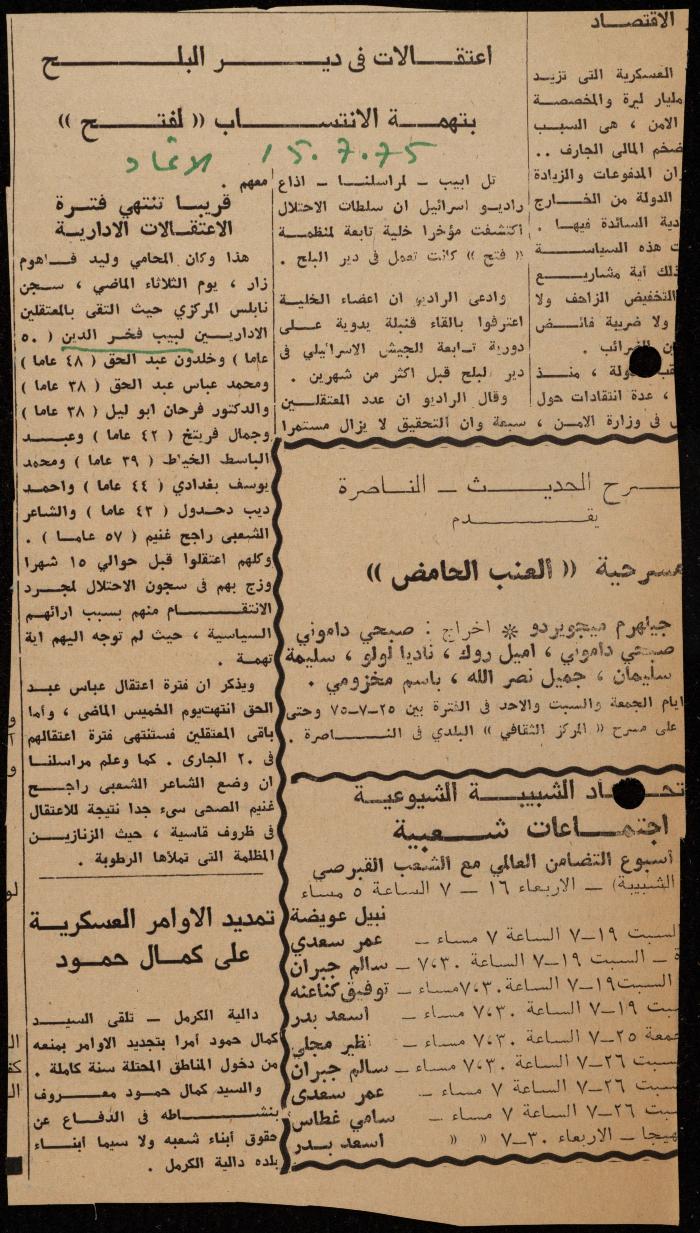 اعتقالات فى دير البلح
بتهمة الانتساب (( لفتح ))
15.7.75 الاتحاد
تل ابيب – لمراسلنا – اذاع
راديو اسرائيل ان سلطات الاحتلال
اكتشفت مؤخرا خلية تابعة لمنظمة
(( فتح )) كانت تعمل فى دير البلح .
وادعى الراديو ان اعضاء الخلية
اعترفوا بالقاء قنبلة يدوية على
دورية تابعة للجيش الاسرائيلي فى
دير البلح قبل اكثر من شهرين .
وقال الراديو ان عدد المعتقلين
سبعة وان التحقيق لا يزال مستمرا
معهم .
قريبا تنتهي فترة
الاعتقالات الادارية
هذا وكان المحامي وليد فاهوم
زار ، يوم الثلاثاء الماضي ، سجن
نابلس المركزي حيث التقى بالمعتقلين
الاداريين لبيب فخر الدين ( ٥٠
عاما ) وخلدون عبد الحق ( ٤٨ عاما )
ومحمد عباس عبد الحق ( ٣٨ عاما )
والدكتور فرحان ابو ليل ( ٣٨ عاما )
وجمال فريتخ ( ٤٢ عاما ) وعبد
الباسط الخياط ( ٣٩ عاما ) ومحمد
يوسف بغدادي ( ٤٤ عاما ) واحمد
ديب دحدول ( ٤٣ عاما ) والشاعر
الشعبى راجح غنيم ( ٥٧ عاما ) .
وكلهم اعتقلوا قبل حوالي ١٥ شهرا
وزج بهم فى سجون الاحتلال لمجرد
الانتقام منهم بسبب ارائهم
السياسية ، حيث لم توجه اليهم اية
تهمة .
ويذكر ان فترة اعتقال عباس عبد
الحق انتهت يوم الخميس الماضى ، وأما
باقى المعتقلين فستنتهى فترة اعتقالهم
فى ٢٠ الجارى . كما وعلم مراسلنا
ان وضع الشاعر الشعبى راجح
غنيم الصحى سىء جدا نتيجة للاعتقال
فى ظروف قاسية ، حيث الزنازين
المظلمة التى تملأها الرطوبة .
تمديد الاوامر العسكرية
على كمال حمود
دالية الكرمل – تلقى السيد
كمال حمود أمرا بتجديد الاوامر بمنعه
من دخول المناطق المحتلة سنة كاملة .
والسيد كمال حمود معروف
بنشاطه فى الدفاع عن
حقوق أبناء شعبه ولا سيما ابناء
بلده دالية الكرمل .
الاقتصاد
العسكرية التى تزيد
مليار ليرة والمخصصة
الامن ، هى السبب
ضخم المالى الجارف ..
ان المدفوعات والزيادة
الدولة من الخارج
دية السائدة فيها .
ت هذه السياسة
ذلك أية مشاريع
التخفيض الزاحف ولا
ولا ضريبة فائض
الضرائب .
ولة ، منذ
، عدة انتقادات حول
ل فى وزارة الامن ،
سرح الحديث – الناصرة
يقدم
مسرحية (( العنب الحامض ))
جيلهرم ميجويردو * اخراج : صبحي داموني
صبحي داموني ، اميل روك ، ناديا لولو ، سليمة
سليمان ، جميل نصر الله ، باسم مخزومي .
ايام الجمعة والسبت والاحد فى الفترة بين ٢٥–٧–٧٥ وحتى
على مسرح (( المركز الثقافي )) البلدي فى الناصرة .
تحاد الشبيبة الشيوعية
اجتماعات شعبية
أسبوع التضامن العالمي مع الشعب القبرصي
الشبيبة) – الاربعاء ١٦ – ٧ الساعة ٥ مساء
نبيل عويضة
السبت ١٩–٧ الساعة ٧ مساء – عمر سعدي
ة – السبت ١٩–٧ الساعة ٧،٣٠ – سالم جبران
السبت ١٩–٧ الساعة ٧،٣٠ مساء – توفيق كناعنه
سبت ١٩–٧ الساعة ٧،٣٠ مساء – اسعد بدر
جمعة ٢٥–٧ الساعة ٧،٣٠ مساء – نظير مجلي
سبت ٢٦–٧ الساعة ٧،٣٠ مساء – سالم جبران
سبت ٢٦–٧ الساعة ٧ مساء – عمر سعدى
سبت ٢٦–٧ الساعة ٧ مساء – سامي غطاس
هيجا – الاربعاء ٣٠–٧ (( (( اسعد بدر